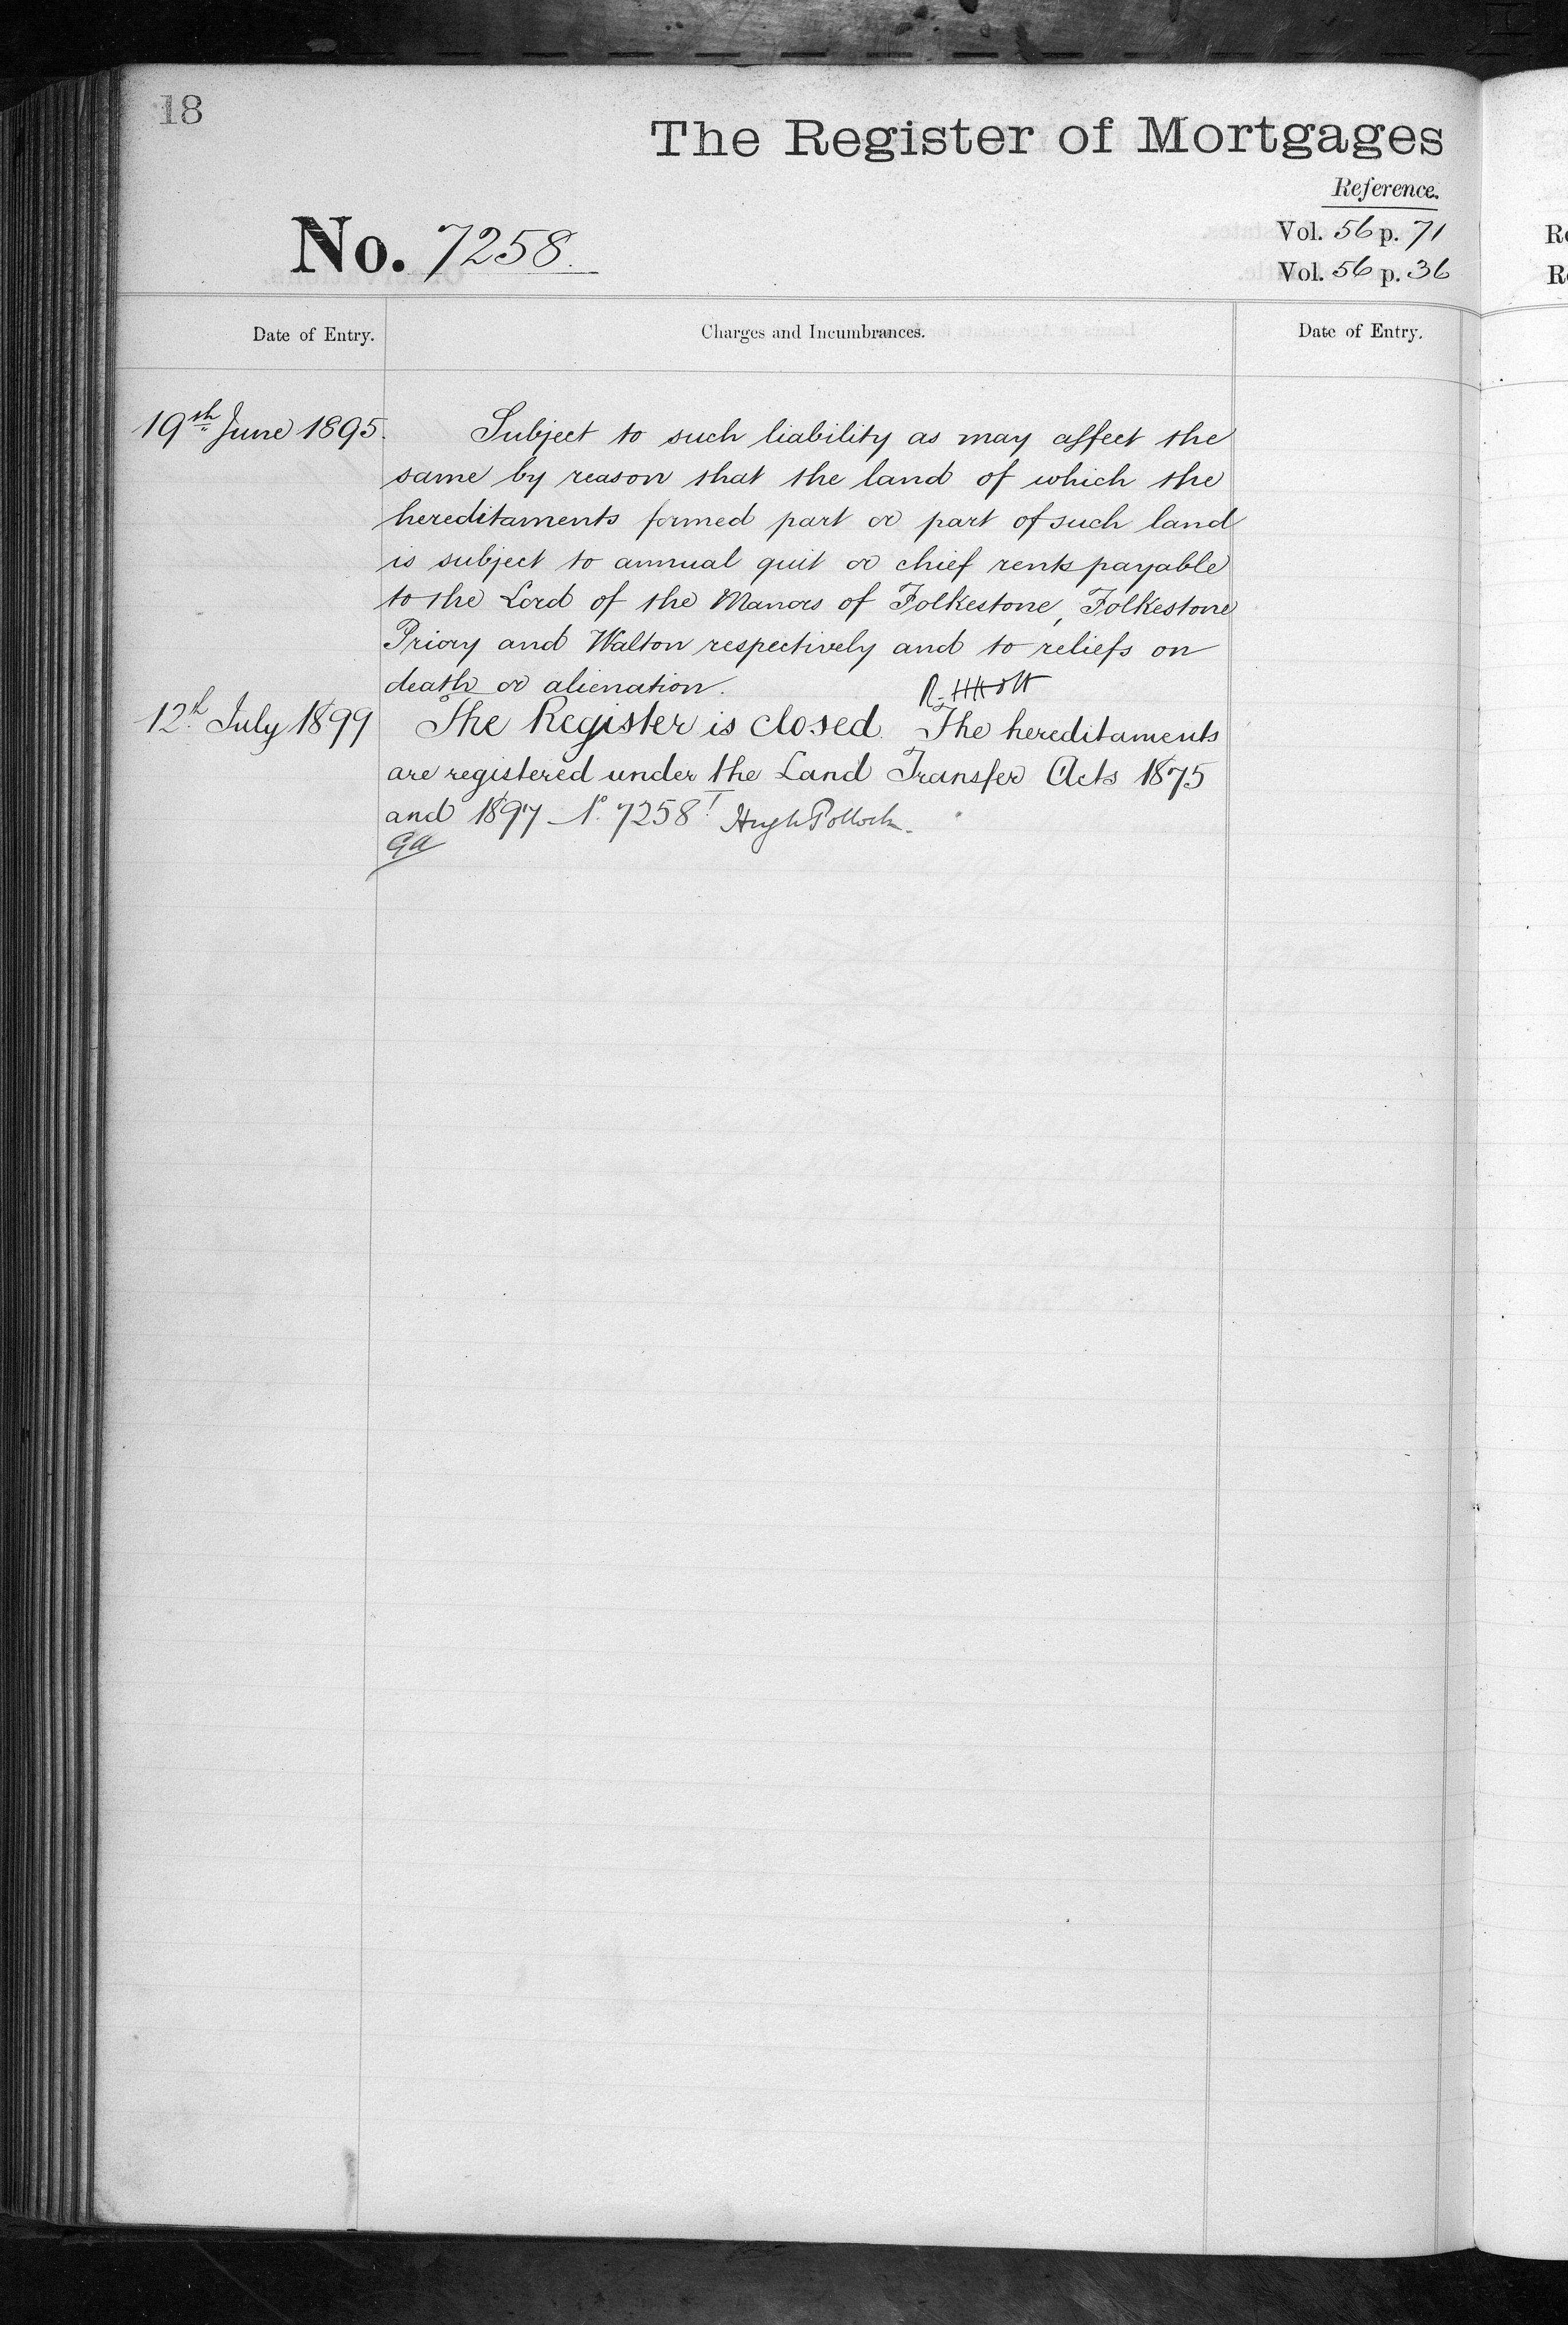 18
The Register of Mortgages
Reference.
No. 7258.
Vol. 56 p. 71
Vol. 56 p. 36
Date of Entry.
Charges and Incumbrances.
Date of Entry.
19th June 1895.
Subject to such liability as may affect the
same by reason that the land of which the
hereditaments formed part or part of such land
is subject to annual quit or chief rents payable
to the Lord of the Manors of Folkestone, Folkestone
Priory and Walton respectively and to reliefs on
death or alienation.
12th July 1899
The Register is closed. The hereditaments
are registered under the Land Transfer Acts 1875
and 1897 No. 7258 I Hugh Pollock.